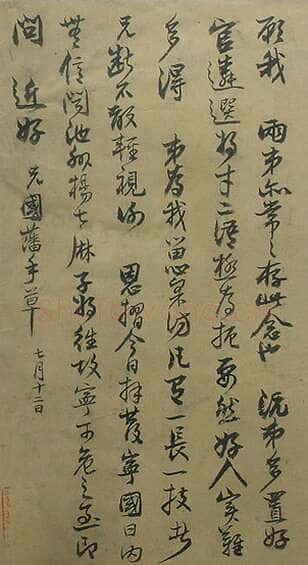 願我 兩弟亦常常存此念也 沅弟多置好
官遴選將才二語極為扼要然好人實難
多得 弟為我留心采訪凡有一長一技者
兄斷不敢輕視謝 恩摺今日拜發寧國日內
無信聞池州楊七麻子將往攻寧可危之至即
問 近好 兄國藩手草
七月十二日